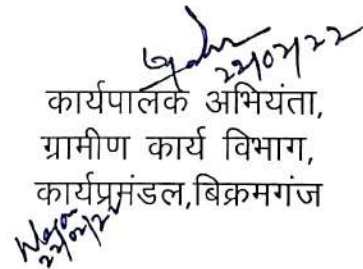 22/02/22
कार्यपालक अभियंता,
ग्रामीण कार्य विभाग,
कार्यप्रमंडल,बिक्रमगंज